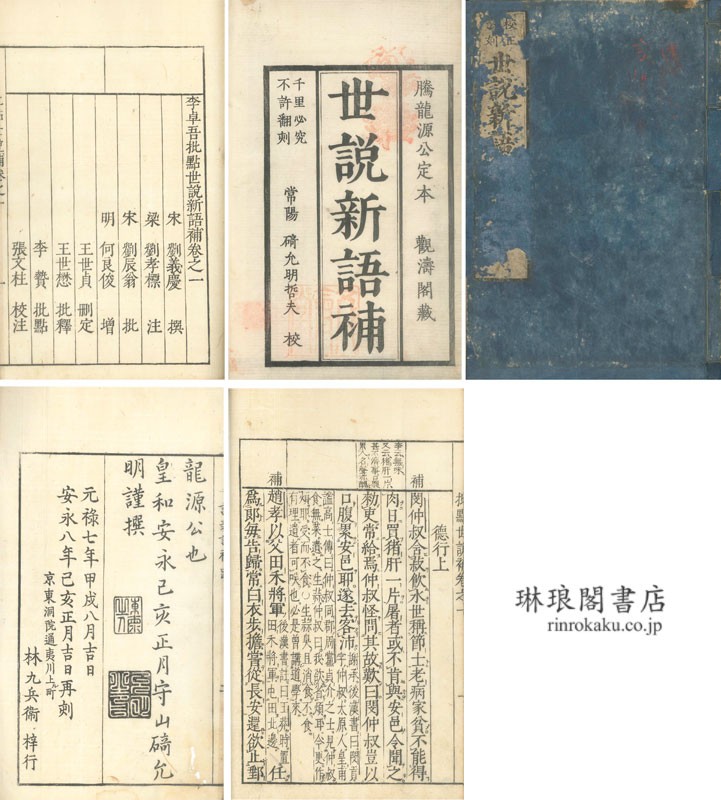 李卓吾批點世說新語補卷之一
宋 劉義慶 撰
梁 劉孝標 注
宋 劉辰翁 批
明 何良俊 增
王世貞 刪定
王世懋 批釋
李贄 批點
張文柱 校注
騰龍源公定本 觀濤閣藏
世說新語補
千里必究
不許翻刻
常陽 𥔎允明哲夫 校
校正
世說新語補
龍源公也
皇和安永己亥正月守山𥔎允
明謹撰
元祿七年甲戌八月吉日
安永八年己亥正月吉日再刻
京東洞院通夷川上ル町
林九兵衛 梓行
德行上
補 閔仲叔含菽飲水世稱節士老病家貧不能得
肉日買猪肝一片屠者或不肯與安邑令聞之
勑吏常給焉仲叔怪問其故歎曰閔仲叔豈以
口腹累安邑耶遂去客沛
補 趙孝以父田禾將軍
任
爲郎每告歸常白衣步擔嘗從長安還欲止郵
琳琅閣書店
rinrokaku.co.jp